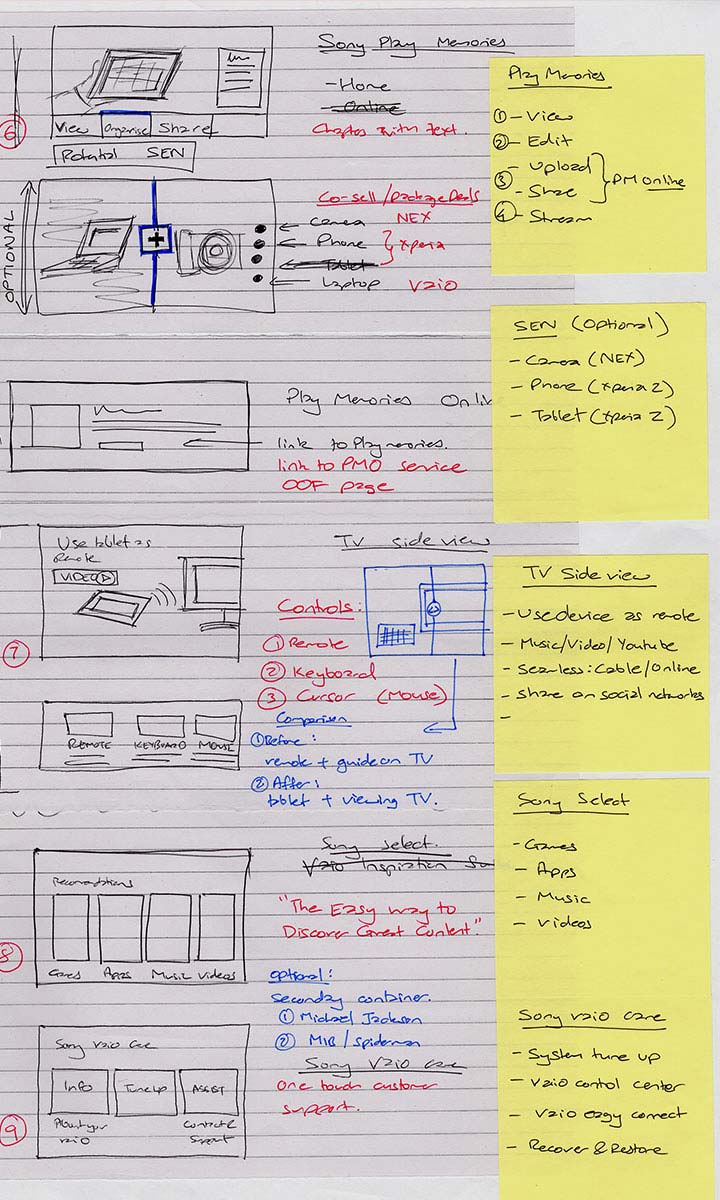 Sony Play Memories
- Home
- Online
Chapter with text.
6
View Organise Share
Potential SEN
OPTIONAL
Co-sell/package Deals
Camera NEX
Phone
Xperia
Tablet
Laptop VAIO
Play Memories
① - View
② - Edit
③ - Upload
- Share
PM Online
④ - Stream
SEN (Optional)
- Camera (NEX)
- Phone (Xperia Z)
- Tablet (Xperia Z)
Play Memories Onlin
link to Playmemories.
link to PMO service
OOF page
7
Use tablet as
Remote
VIDEO
TV side view
Controls:
① Remote
② Keyboard
③ Cursor (Mouse)
REMOTE KEYBOARD MOUSE
Comparison
① Before:
remote + guide on TV
② After:
tablet + viewing TV.
TV Side view
- Use device as remote
- Music/Video/Youtube
- Seamless: Cable/Online
- Share on social networks
-
8
Sony Select.
Vaio Inspiration
"The Easy way to
Discover Great Content"
Games Apps Music Videos
optional:
secondary container.
① Michael Jackson
② MIB / Spiderman
Sony Select
- Games
- Apps
- Music
- Videos
9
Sony Vaio Care
Info Tune up ASSIST
vaio
Contact &
Support
Sony VAIO care
One touch customer
support.
Sony vaio care
- System tune up
- Vaio control center
- Vaio easy connect
- Recover & Restore